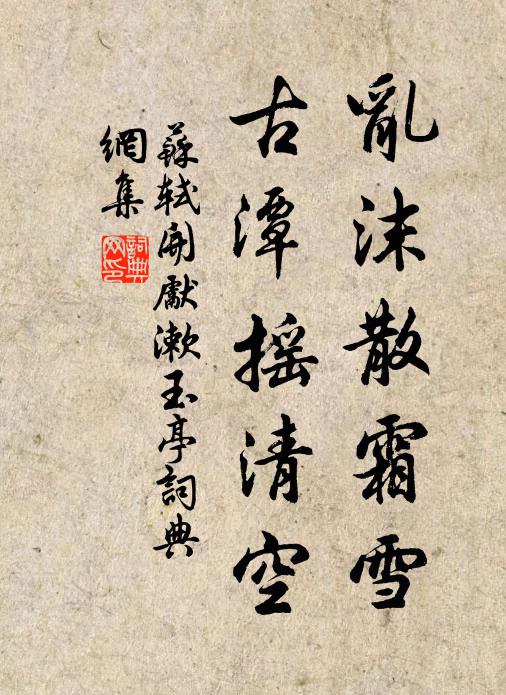 亂沫散霜雪
古潭搖清空
蘇軾開獻漱玉亭詞典
網集
詞典
网印